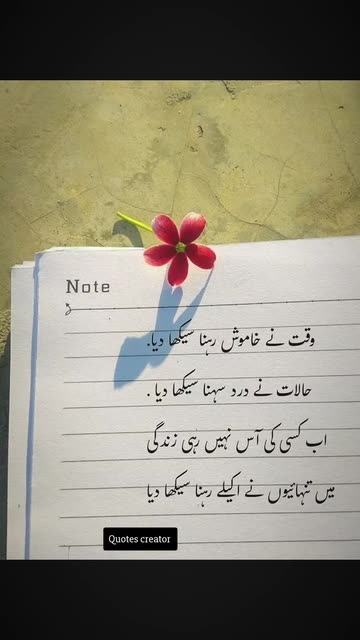 Note
وقت نے خاموش رہنا سیکھا دیا.
حالات نے درد سہنا سیکھا دیا .
اب کسی کی آس نہیں رہی زندگی
میں تنہائیوں نے اکیلے رہنا سیکھا دیا
Quotes creator